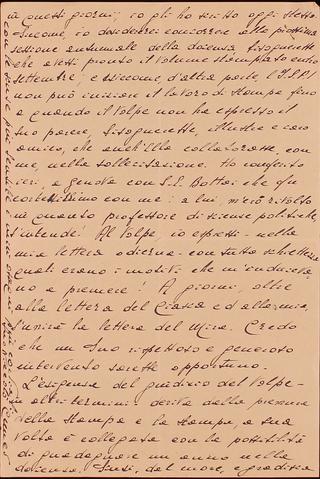 in questi giorni; io gli ho scritto oggi stesso.
Siccome, io desidererei concorrere alla prossima
sessione autunnale della docenza bisognerebbe
che avessi pronto il volume stampato entro
settembre; e siccome d'altra parte, l'I.S.P.I.
non può iniziare il lavoro di stampa fino
a quando il Volpe non ha espresso il
suo parere, bisognerebbe, illustre e caro
amico, che anch'Ella collaborasse, con
me, nella sollecitazione. Ho conferito
ieri, a Genova con S.E. Bottai che fu
cortesissimo con me: a lui, m'ero rivolto
in quanto professore di scienze politiche,
s'intende! Al Volpe, io espressi - nella
mia lettera odierna - con tutta schiettezza
quali erano i motivi che m'inducevano
a premere! A giorni, oltre
alla lettera del e alla mia,
s'unirà la lettera del Mira. Credo
che un Suo rispettoso e generoso
intervento sarebbe opportuno.
L'esigenza del giudizio del Volpe -
in altri termini deriva dalla premura
della stampa e la stampa, a sua
volta è collegata con la possibilità
di guadagnare un anno nella
docenza. Scusi, del more, e gradisca